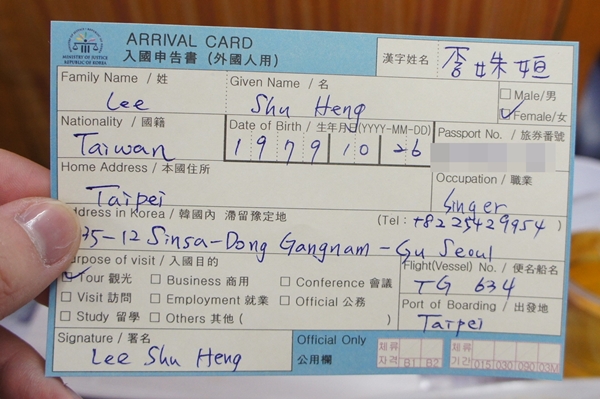 MINISTRY OF JUSTICE
REPUBLIC OF KOREA
ARRIVAL CARD
入國申告書 (外國人用)
漢字姓名 李姝姮
Family Name / 姓
Lee
Given Name / 名
Shu Heng
□ Male/男
☑ Female/女
Nationality / 國籍
Taiwan
Date of Birth / 生年月日(YYYY-MM-DD)
1979 10 26
Passport No. / 旅券番號
Home Address / 本國住所
Taipei
Occupation / 職業
Singer
Address in Korea / 韓國內 滯留豫定地
(Tel: +8225429954)
75-12 Sinsa-Dong Gangnam-Gu Seoul
Purpose of visit / 入國目的
☑ Tour 觀光 □ Business 商用 □ Conference 會議
□ Visit 訪問 □ Employment 就業 □ Official 公務
□ Study 留學 □ Others 其他 ( )
Flight(Vessel) No. / 便名船名
TG 634
Port of Boarding / 出發地
Taipei
Signature / 署名
Lee Shu Heng
Official Only
公用欄
체류
자격 B1 B2
체류
기간 015 030 090 03M